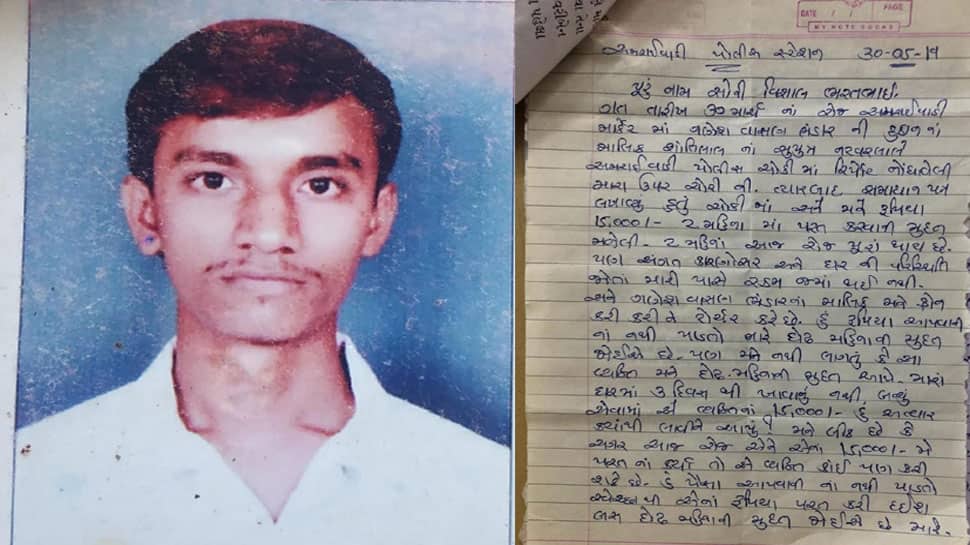 DATE / / PAGE
MY NOTE BOOKS
અમરાઈવાડી પોલીસ સ્ટેશન 30-05-19
મારું નામ સોની વિશાલ ભરતભાઈ.
ગત તારીખ 30 માર્ચ નાં રોજ અમરાઈવાડી
માર્કેટ માં ગણેશ વાસણ ભંડાર ની દુકાન નાં
માલિક શાંતિલાલ નાં
અમરાઈવાડી પોલીસ ચોકી માં રિપોર્ટ નોંધાવેલી
મારા ઉપર ચોરી ની. ત્યારબાદ સમાધાન પત્ર
લખાવ્યું હતું ચોકી માં અને મને રૂપિયા
15,000/- ૨ મહિના માં પરત કરવાની મુદત
મળેલી. ૨ મહિનાં આજ રોજ પૂરાં થાય છે.
પણ અંગત કારણોસર અને ઘર ની પરિસ્થિતિ
જોતાં મારી પાસે રકમ જમાં થઈ નથી.
અને ગણેશ વાસણ ભંડારનાં માલિક મને ફોન
કરી કરી ને ટોર્ચર કરે છે. હું રૂપિયા આપવાની
નાં નથી પાડતો મારે દોઢ મહિનાની મુદત
જોઈએ છે. પણ મને નથી લાગતું કે આ
વ્યક્તિ મને દોઢ મહિનાની મુદત આપે. મારાં
ઘરમાં 3 દિવસ થી ખાવાનું નથી,
એવામાં એ વ્યક્તિનાં 15,000/- હું અત્યાર
ક્યાંથી લાવીને આપું! મને બીક છે કે
અગર આજ રોજ એને એનાં 15,000/- મે
પરત નાં કર્યા તો એ વ્યક્તિ કાંઈ પણ કરી
શકે છે. હું પૈસા આપવાની ના નથી પાડતો
એનાં રૂપિયા પરત કરી દઈશ
બસ દોઢ મહિનાની મુદત જોઈએ છે મારે.